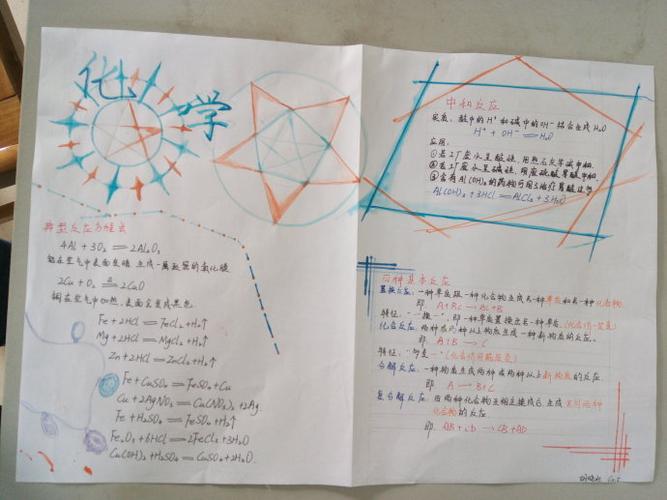 化学
典型反应方程式
4Al + 3O₂ ══ 2Al₂O₃
铝在空气中表面变暗 生成一层致密的氧化膜
2Cu + O₂ ══ 2CuO
铜在空气中加热,表面会变成黑色
Fe + 2HCl ══ FeCl₂ + H₂↑
Mg + 2HCl ══ MgCl₂ + H₂↑
Zn + 2HCl ══ ZnCl₂ + H₂↑
Fe + CuSO₄ ══ FeSO₄ + Cu
Cu + 2AgNO₃ ══ Cu(NO₃)₂ + 2Ag
Fe + H₂SO₄ ══ FeSO₄ + H₂↑
Fe₂O₃ + 6HCl ══ 2FeCl₃ + 3H₂O
Cu(OH)₂ + H₂SO₄ ══ CuSO₄ + 2H₂O
中和反应
实质:酸中的H⁺和碱中的OH⁻结合生成H₂O
H⁺ + OH⁻ ══ H₂O
应用:
①若工厂废水呈酸性,用熟石灰等碱中和
②若工厂废水呈碱性,用废硫酸等酸中和
③含有Al(OH)₃的药物可用于治疗胃酸过多
Al(OH)₃ + 3HCl ══ AlCl₃ + 3H₂O
四种基本反应
置换反应:一种单质跟一种化合物生成另一种单质和另一种化合物
即 A + BC → AC + B
特征:"一换一",即一种单质置换出另一种单质
化合反应:两种或两种以上物质生成一种新物质的反应。
即 A + B → C
特征:"多变一"
分解反应:一种物质生成两种或两种以上新物质的反应
即 A → B + C
复分解反应:由两种化合物互相交换成分,生成另外两种
化合物的反应
即 AB + CD → CB + AD